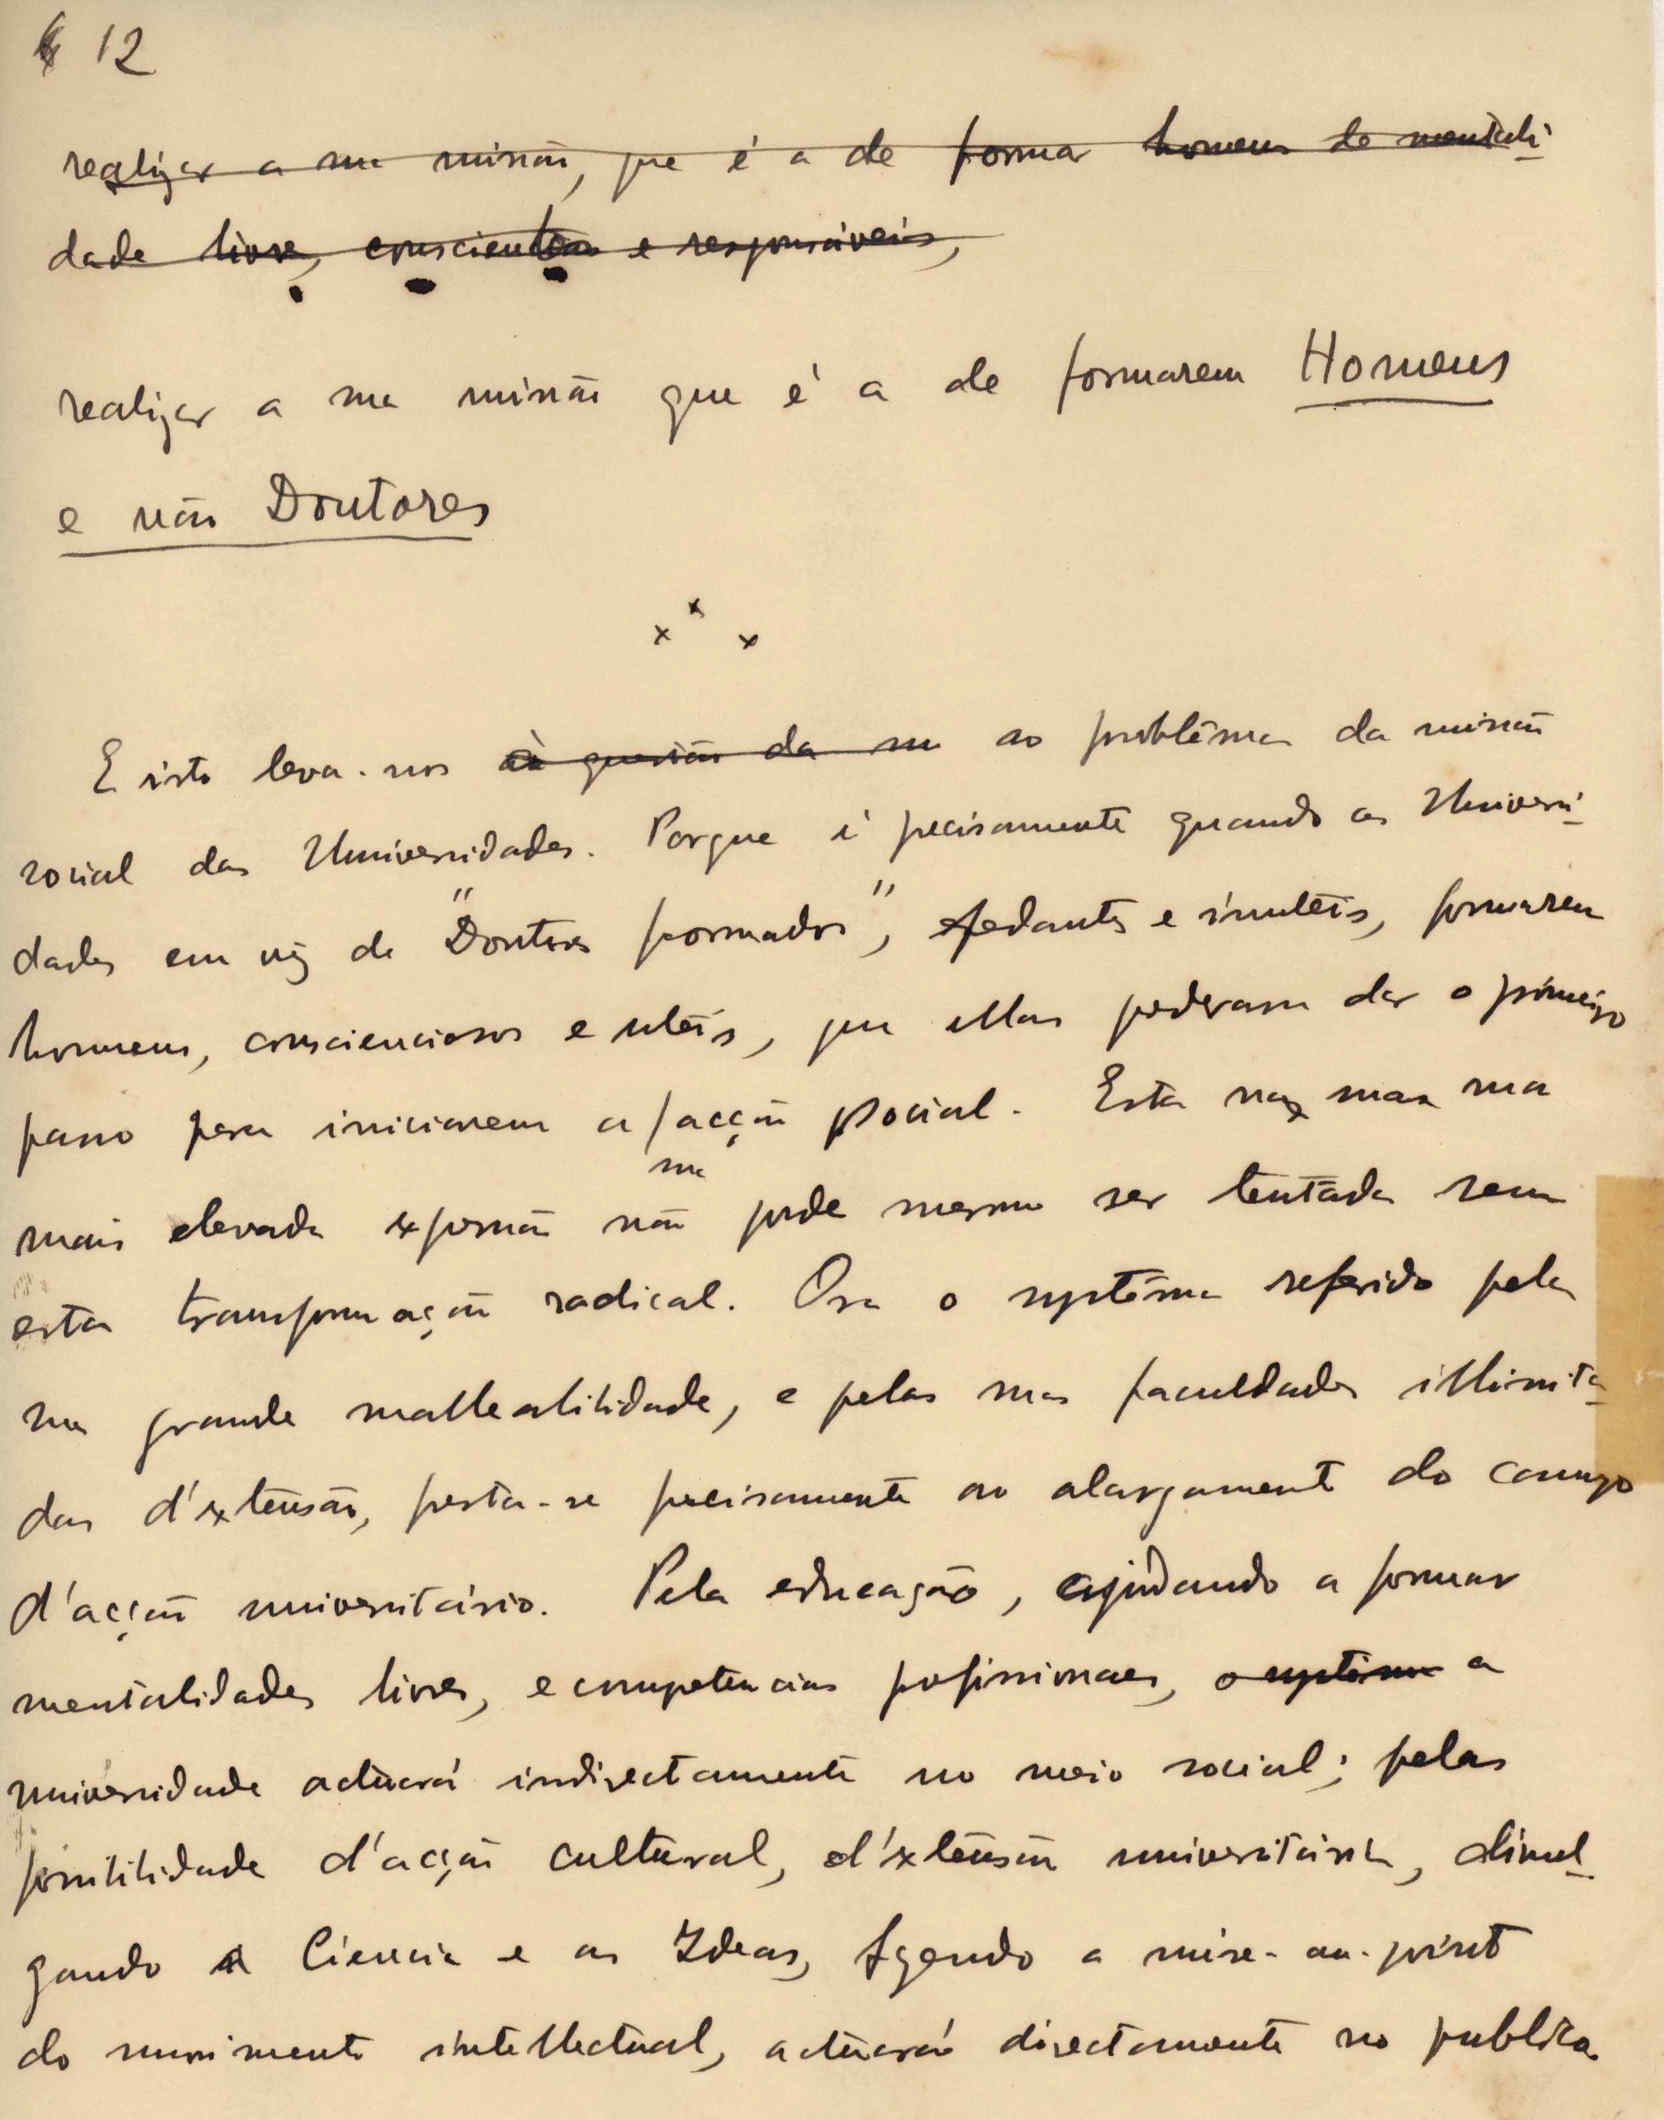 12
realizar a sua missão, que é a de formar homens de mentali-
dade livre, conscientes e responsáveis,
realizar a sua missão que é a de formarem Homens
e não Doutores
x x x
E isto leva-nos à questão da su ao problêma da missão
social das Universidades. Porque é precisamente quando as Universi-
dades em vez de "Doutores formados", pedantes e inuteis, formarem
homens, conscienciosos e uteis, que ellas poderam dar o primeiro
passo para iniciarem a acção social. Esta na sua
sua
mais elevada expressão não pode mesmo ser tentada sem
esta transformação radical. Ora o systêma referido pela
sua grande malleabilidade, e pelas suas faculdades illimita-
das d'extensão, presta-se precisamente ao alargamento do campo
d'acção universitário. Pela educação, ajudando a formar
mentalidades livres, e competencias profissionaes, o systêma a
universidade actuará indirectamente no meio social; pelas
possibilidade d'acção cultural, d'extensão universitária, divul-
gando a Ciencia e as Ideas, fazendo a mise-au-point
do movimento intellectual, actuará directamente no publico.